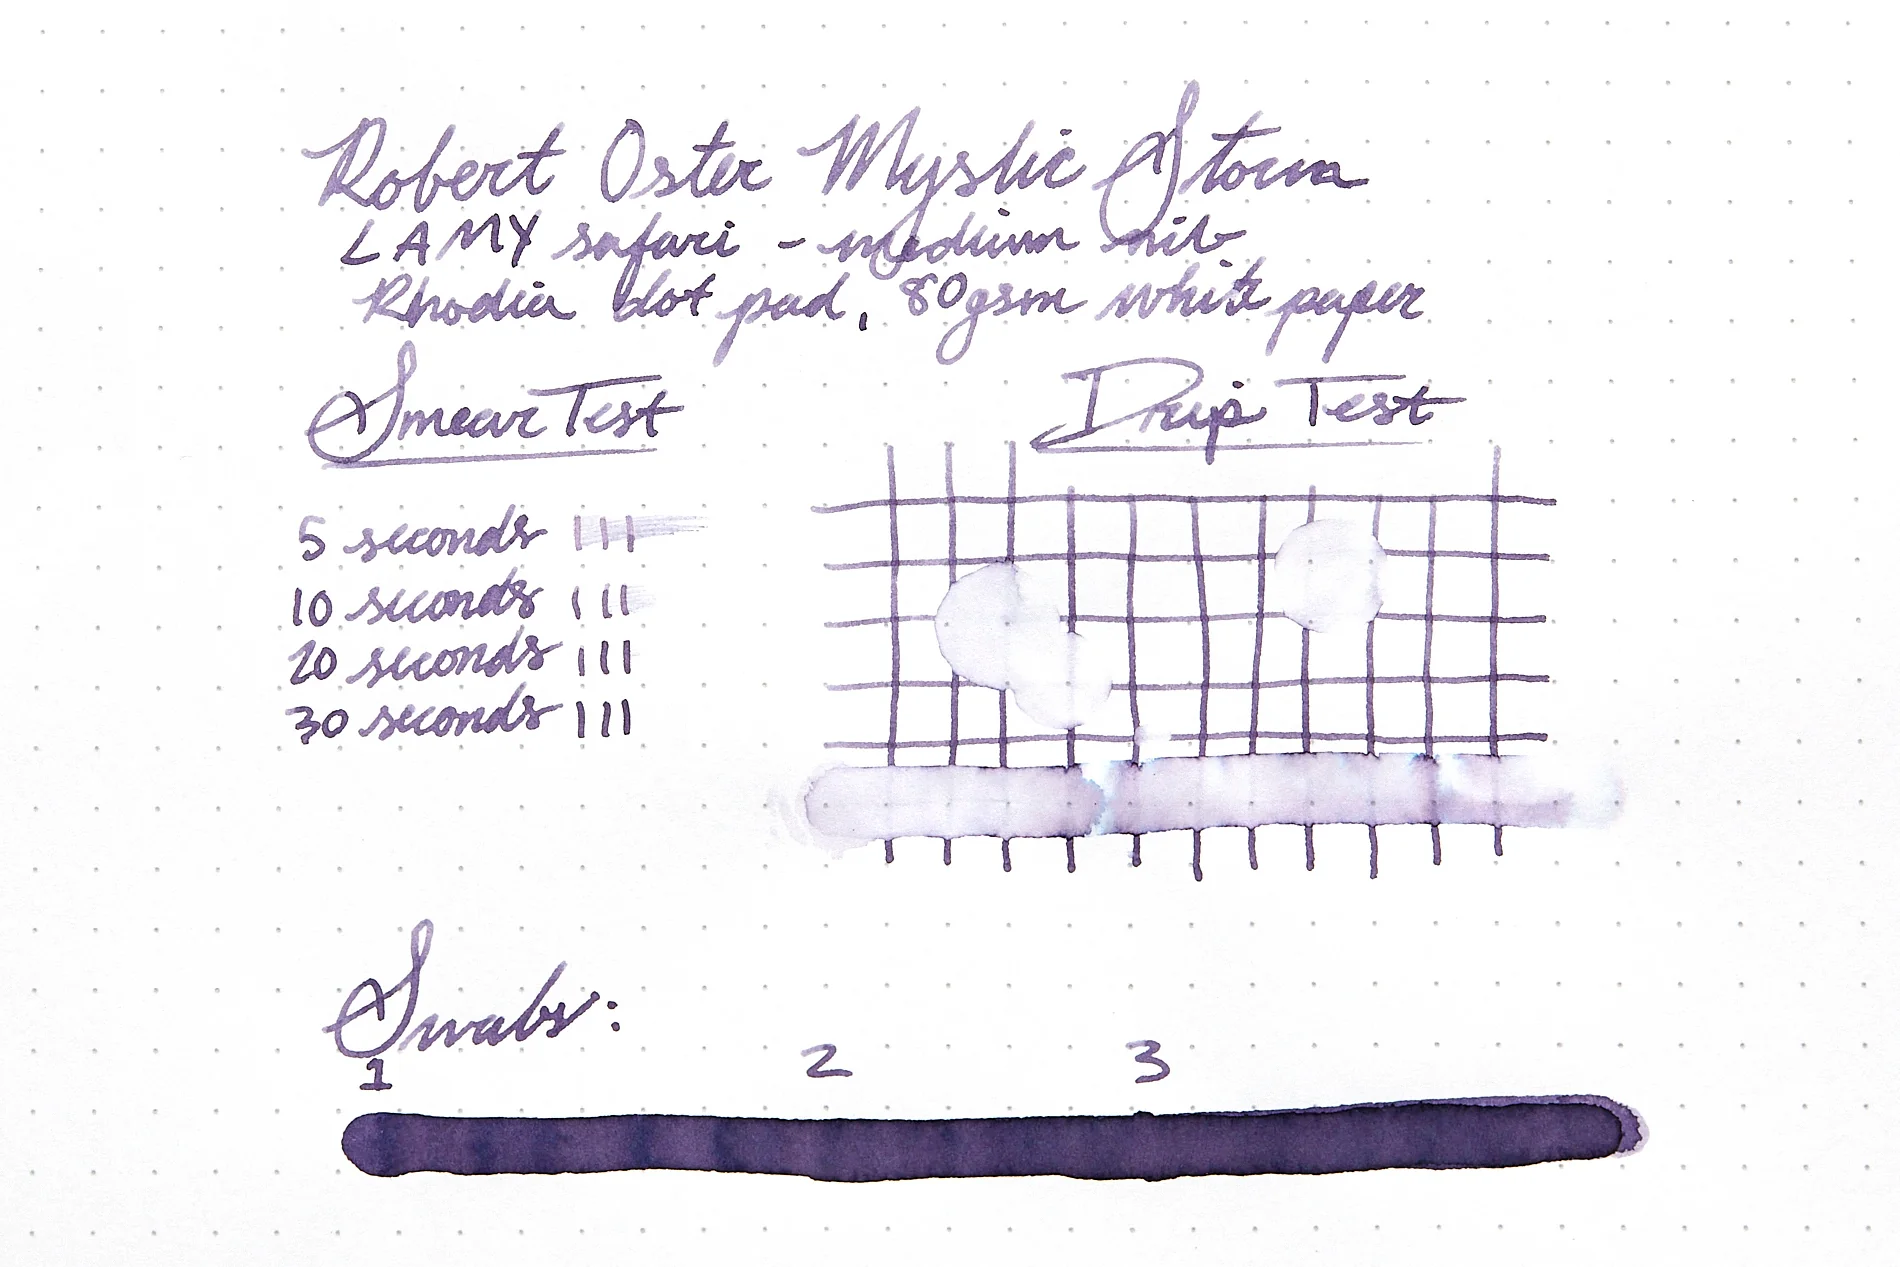 Robert Oster Mystic Storm
LAMY safari - medium nib
Rhodia dot pad, 80gsm white paper
Smear Test
5 seconds
10 seconds
20 seconds
30 seconds
Drip Test
Swabs:
1 2 3